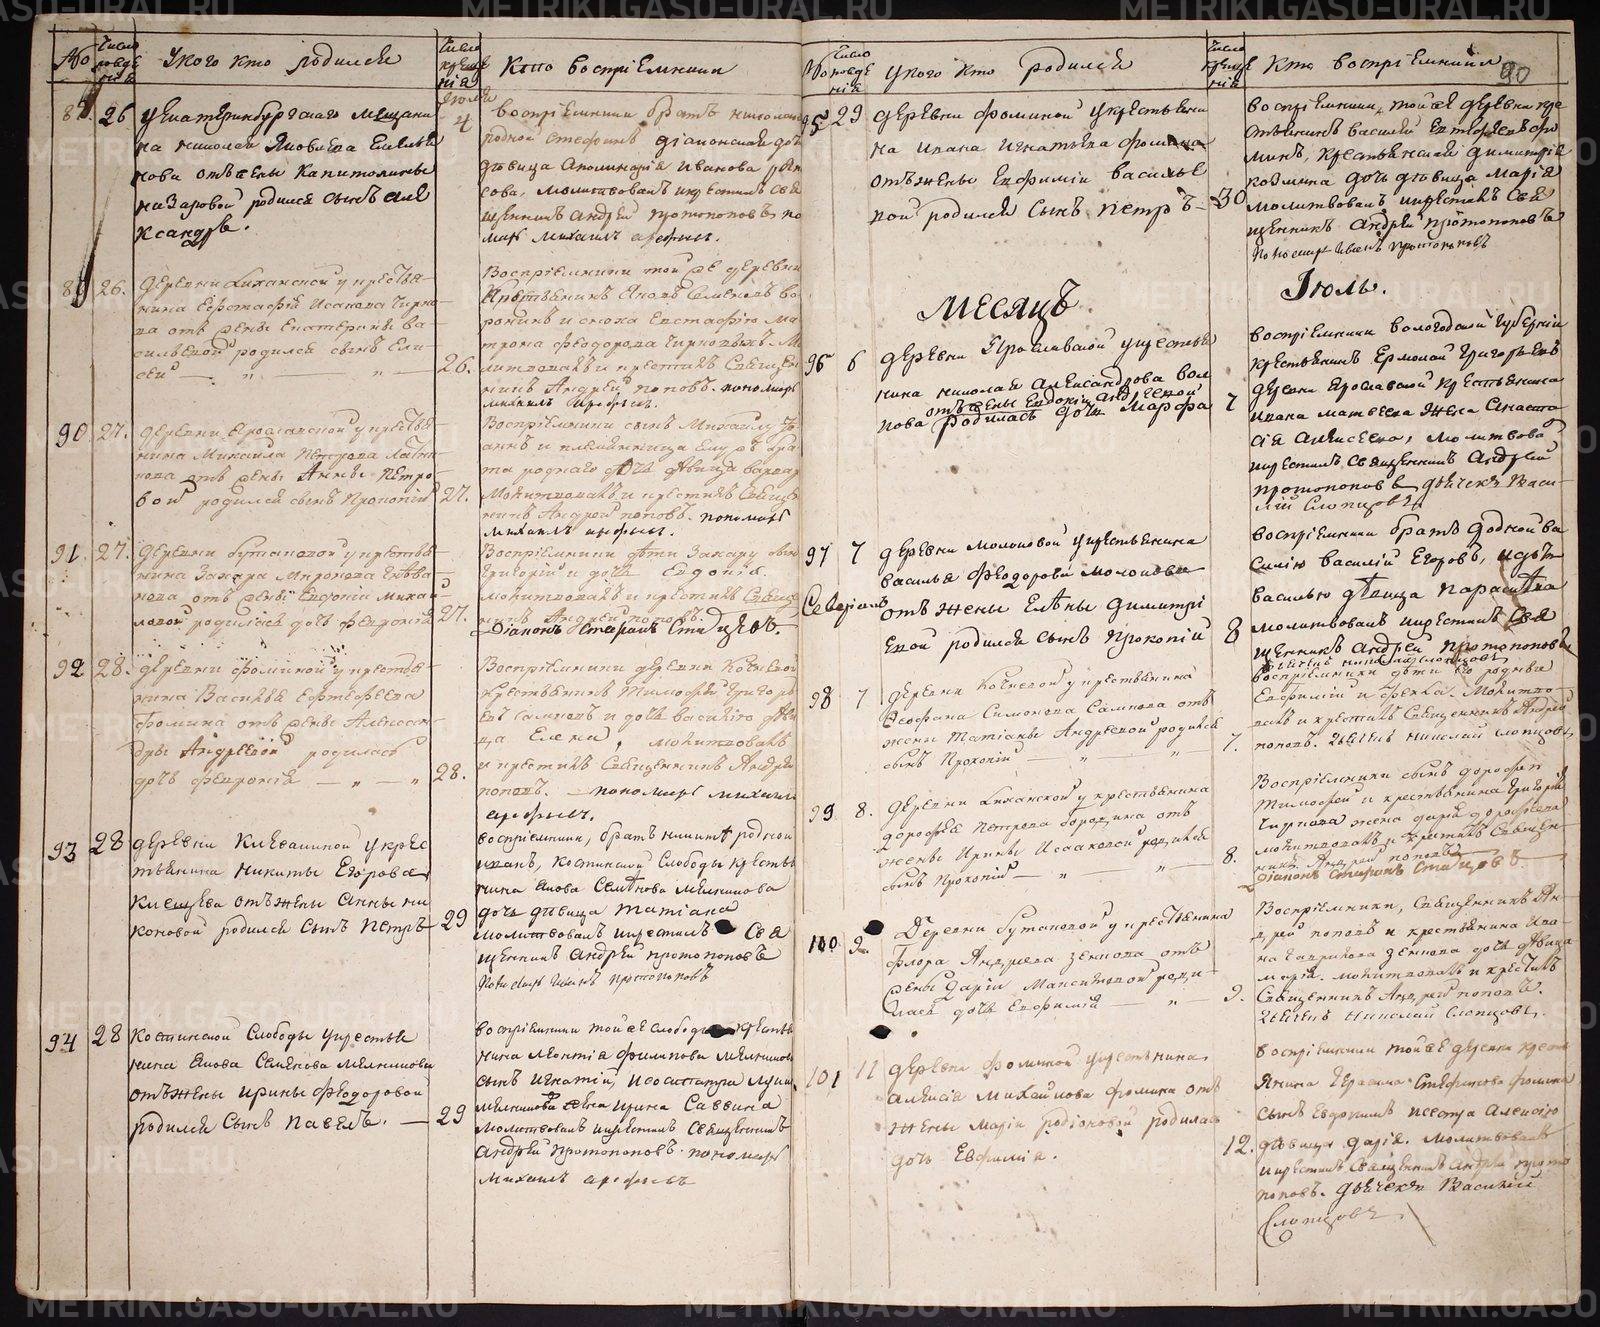 №
Число рожденія
У кого кто родился
Число крещенія
Кто воспріемники
88. 26
у Екатеринбургскаго мещани
на Николая Яковлева
нова отъ жены Капитолины
Назаровой родился сынъ Але
ксандръ.
июля
4
воспріемники братъ Николаю
родной Стефанъ діаконская дочь
девица Аполинарія Иванова
молитвовалъ и крестилъ Свя
щенникъ Андрей Протопоповъ по
марь Михаилъ Арефьевъ.
89 26.
деревни у крестья-
нина Ефстафія Исакова Чирко
ва отъ жены Екатерины Ва-
сильевой родился сынъ Ели
сей
26.
Воспріемники той же деревни
Крестьянинъ Яковъ Семеновъ
и сноха Евстафію Ма
трона Феодорова Чирковыхъ М
литвовалъ и крестилъ Священ
никъ Андрей поповъ. пономарь
Михаилъ Арефьевъ.
90 27.
деревни Ярославской у крестья-
нина Михаила Петрова
отъ жены Анны Петро-
вой родился сынъ Прокопій
27.
Воспріемники сынъ Михаилу
и племянница ему бра
та роднаго дочь девица Варвар
Молитвовалъ и крестилъ Священ
никъ Андрей поповъ. пономарь
Михаилъ Арефьевъ.
91. 27.
деревни Бутаковой у крестья-
нина Захара Миронова
отъ жены Евдокіи Михай
ловой родилася дочь Февронія
27.
Воспріемники дети Захару сынъ
Григорій и дочь Евдокія.
молитвовалъ и крестилъ Священ
никъ Андрей поповъ.
Діаконъ Стефанъ
92 28.
деревни Фоминой у крестья-
нина Василья Ефтефеева
Фомина отъ жены Алексан-
дры Андреевой родилась
дочь Феаронія
28.
Воспріемники деревни Кочневой
Крестьянинъ Тимофей Григорь
евъ и дочь Василію деви
ца Елена, молитвовалъ
и крестилъ Священникъ Андрей
поповъ. пономарь Михаилъ
Арефьевъ.
93 28
деревни Клевакиной у крес
тьянина Никиты Егорова
Клещева отъ жены Анны Ни
коновой родился сынъ Петръ
29
воспріемники, братъ Никите родной
Иванъ, Костинской Слободы крестья
нина Якова Семенова Мелникова
дочь девица Татіана
молитвовалъ и крестилъ Свя
щенникъ Андрей Протопоповъ
Пономарь Иванъ Протопоповъ
94 28
Костинской Слободы у крестья
нина Якова Семенова Мелникова
отъ жены Ирины Феодоровой
родился сынъ Павелъ.
29
воспріемники той же слободы крестья
нина Леонтія Филипова Мелникова
сынъ Игнатій,
Мелникова жена Ирина Саввина
молитвовалъ и крестилъ Священникъ
Андрей Протопоповъ. пономарь
Михаилъ Арефьевъ
№
Число рожденія
У кого кто родился
Число крещенія
Кто воспріемники
90
95 29
деревни Фоминой у крестьяни
на Ивана Игнатьева Фомина
отъ жены Евфиміи Василье
вой родился сынъ Петръ
30
воспріемники, той же деревни кре
стьянинъ Василій Евтефеевъ Фо
минъ, крестьянской Димитрія
Козмина дочь девица Марія
молитвовалъ и крестилъ Свя
щенникъ Андрей Протопоповъ
Пономарь Иванъ Протопоповъ
МЕСЯЦЪ
Іюль.
96 6
деревни Ярославской у крестья
нина Николая Александрова Вол
отъ жены Евдокіи Андреевой
кова родилась дочь Марфа
7
воспріемники Вологодской губерніи
крестьянинъ Ермолай Григорьевъ
деревни Ярославской крестьянина
Ивана Матвеева жена Анаста
сія Алексеева, молитвова
и крестилъ Священникъ Андрей
Протопоповъ дьячекъ Васи-
лій Слопцовъ
97 7
деревни Молоковой у крестьянина
Василья Феодорова Молокова
отъ жены Елены Димитрі
евой родился сынъ Прокопій
8
воспріемники братъ родной Ва
силію Василій Егоровъ,
Василью девица Парасковa
молитвовалъ и крестилъ Свя
щенникъ Андрей Протопоповъ
дьячекъ Николай Слопцовъ
98 7
деревни Кочневой у крестьянина
Феофана Симонова отъ
жены Татіаны Андреевой родился
сынъ Прокопій
7.
воспріемники дети
Евфимій и Фекла. Молитво-
валъ и крестилъ Священникъ Андрей
поповъ. дьячекъ Николай Слопцовъ
99 8.
деревни у крестьянина
Дорофея Петрова Бородина отъ
жены Ирины Исааковой родился
сынъ Прокопій
8.
Воспріемники сынъ Дорофею
Тимофей и крестьянина Григорія
Чиркова жена Дарья Дорофеева
молитвовалъ и крестилъ Священ-
никъ Андрей поповъ
діаконъ Стефанъ
100 9.
Деревни Бутаковой у крестьянина
Флора Андреева Зенкова отъ
жены Даріи Максимовой роди-
лась дочь Евфимія
9.
Воспріемники, Священникъ Ан-
дрей поповъ и крестьянина Ива-
на Гаврилова Зенкова дочь девица
Марія. молитвовалъ и крестилъ
Священникъ Андрей поповъ.
дьячекъ Николай Слопцовъ.
101 11
деревни Фоминой у крестьянина
Алексія Михайлова Фомина отъ
жены Маріи Родіоновой родилась
дочь Евфимія.
12.
воспріемники той же деревни кресть
янина Герасима Стефанова Фомина
сынъ Евдокимъ и сестра Алексію
девица Дарія. молитвовалъ
и крестилъ Священникъ Андрей Прото
поповъ. дьячекъ Василій
Слопцовъ.